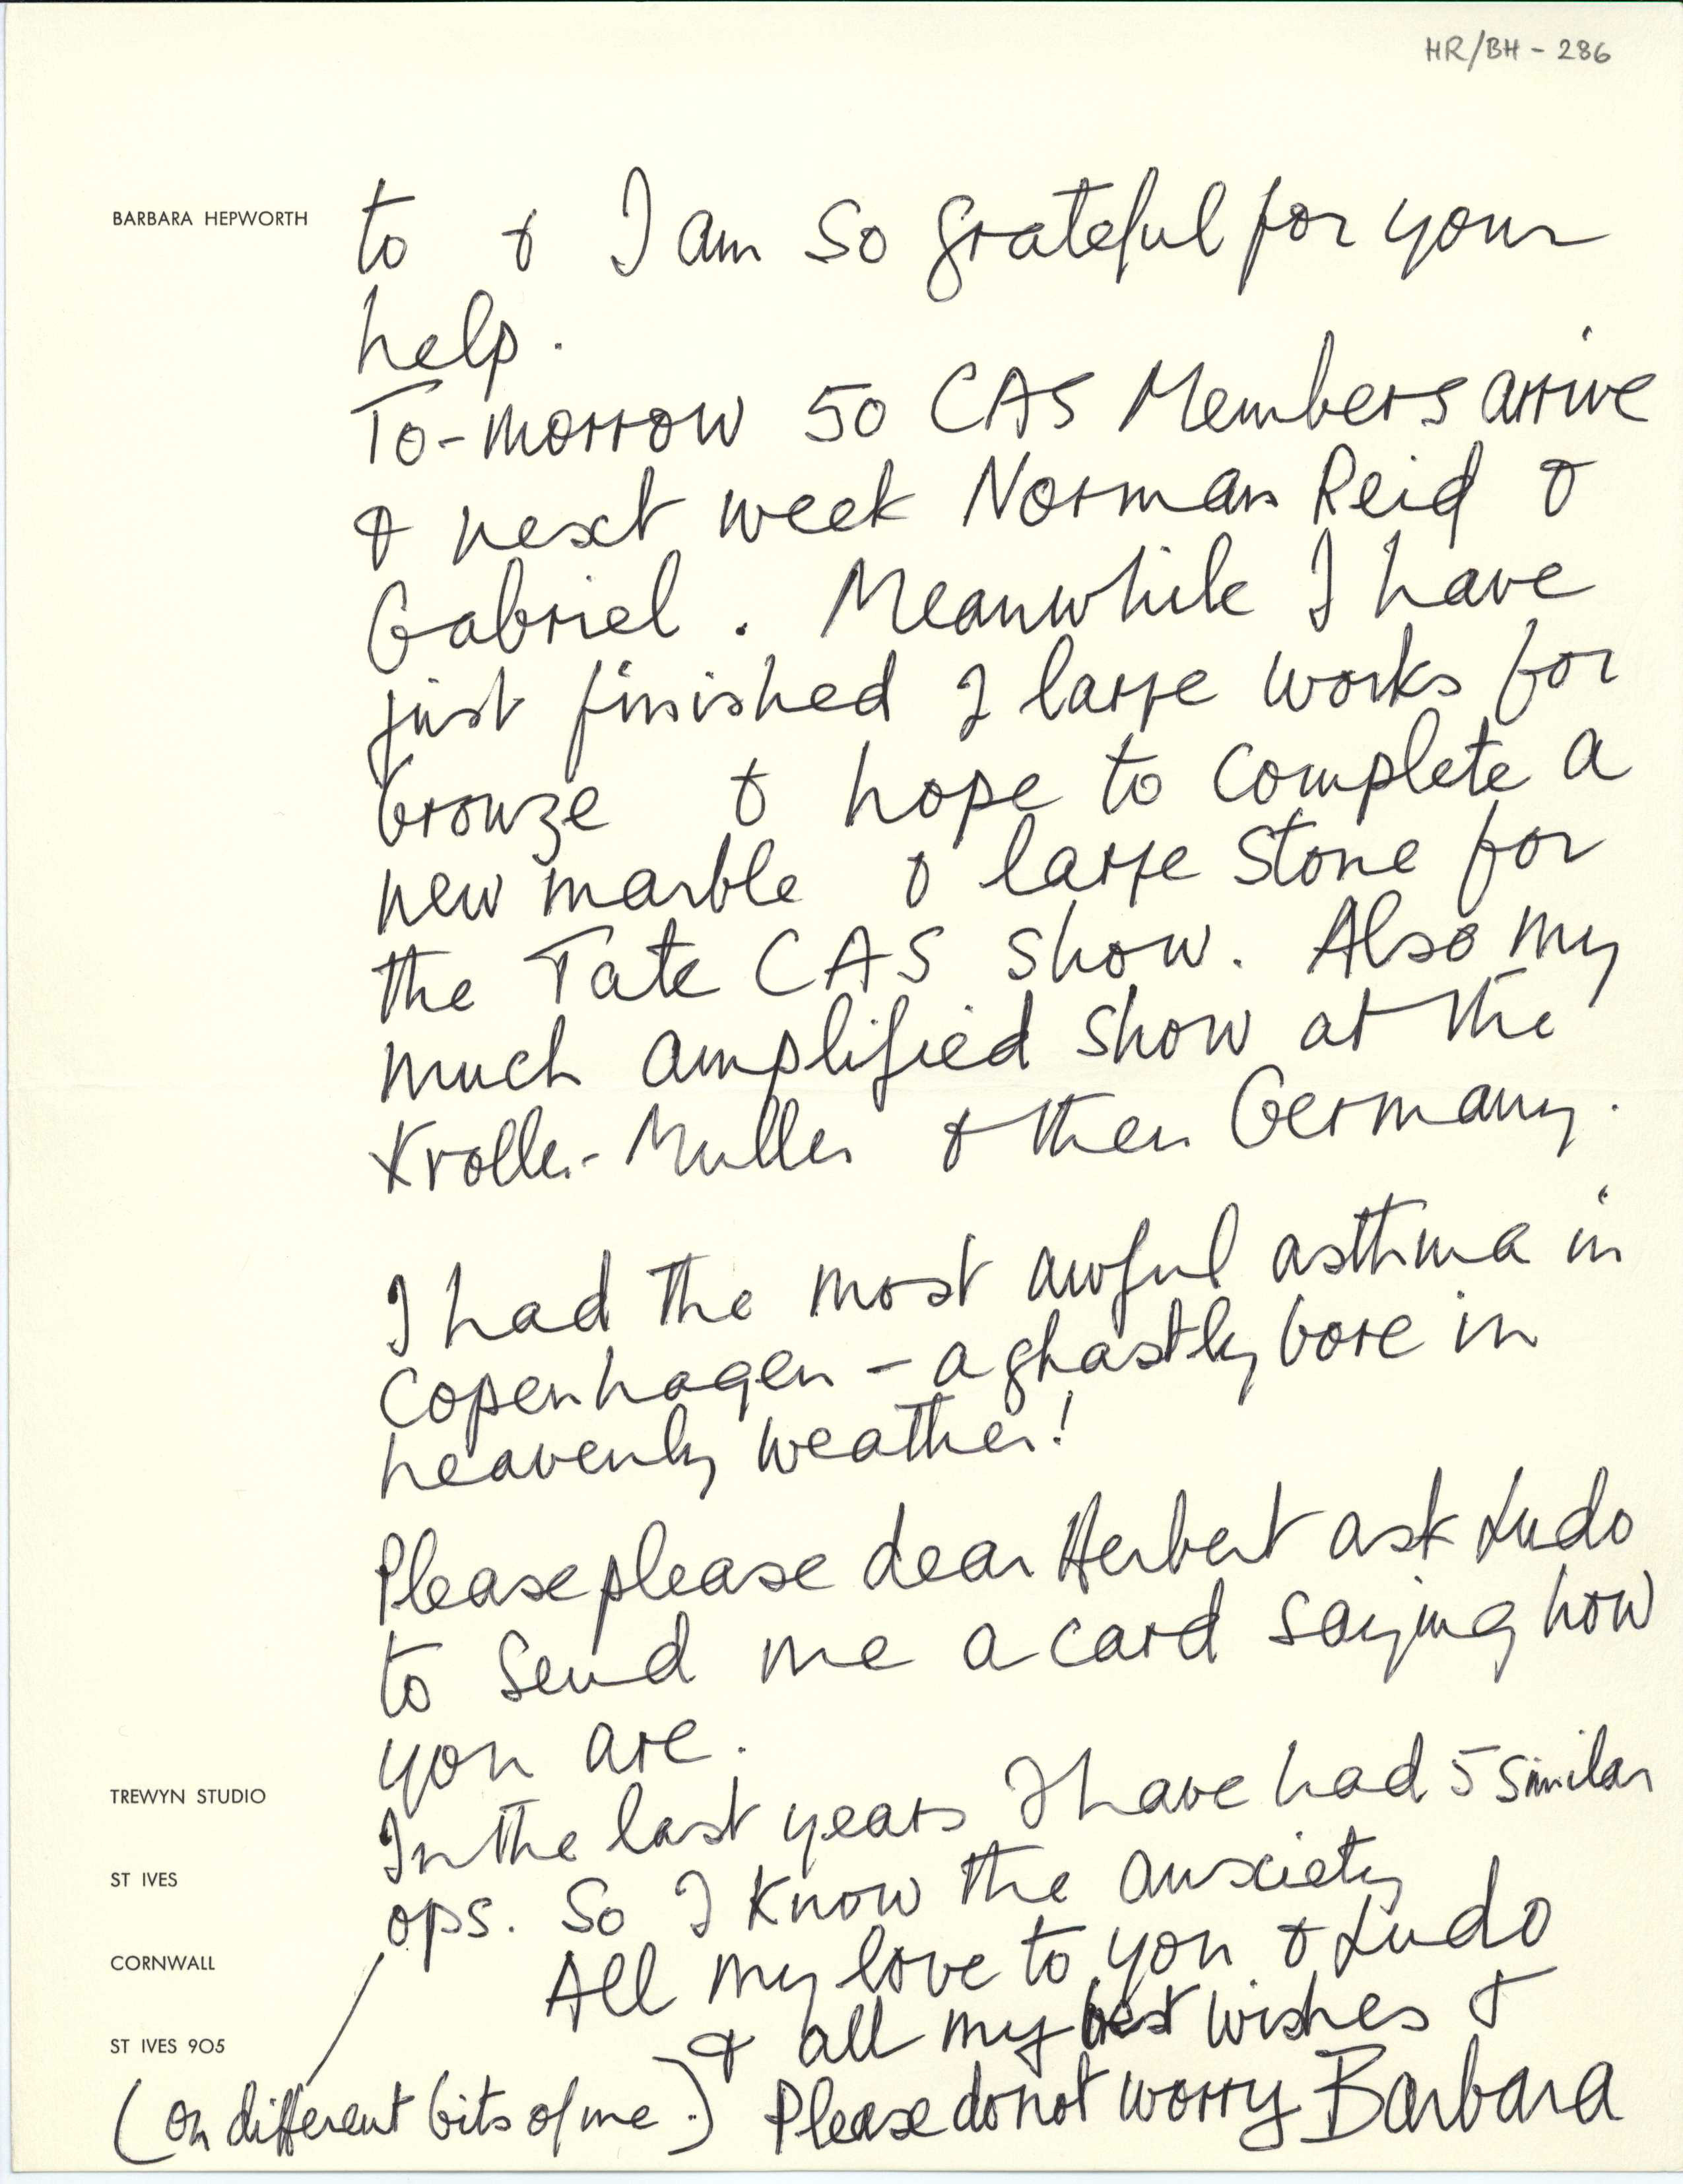 HR/BH - 286
BARBARA HEPWORTH
to & I am so grateful for your
help.
To-morrow 50 CAS Members arrive
& next week Norman Reid &
Gabriel. Meanwhile I have
just finished 2 large works for
bronze & hope to complete a
new marble & large stone for
the Tate CAS show. Also my
much amplified show at the
Kroller-Muller & then Germany.
I had the most awful asthma in
Copenhagen - a ghastly bore in
heavenly weather!
Please please dear Herbert ask Ludo
to send me a card saying how
you are.
In the last years I have had 5 similar
ops. So I know the anxiety
All my love to you & Ludo
& all my best wishes &
Please do not worry Barbara
(on different bits of me.)
TREWYN STUDIO
ST IVES
CORNWALL
ST IVES 905